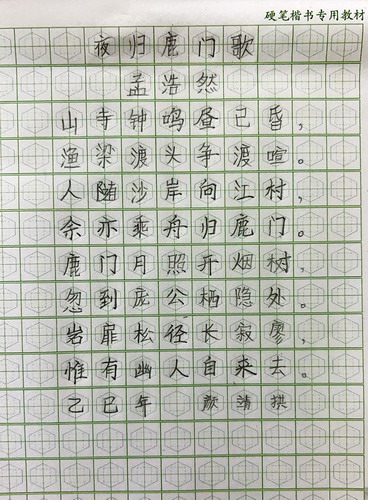 硬笔楷书专用教材
夜归鹿门歌
孟浩然
山寺钟鸣昼已昏，
渔梁渡头争渡喧。
人随沙岸向江村，
余亦乘舟归鹿门。
鹿门月照开烟树，
忽到庞公栖隐处。
岩扉松径长寂廖，
惟有幽人自来去。
乙巳年 颜靖拱